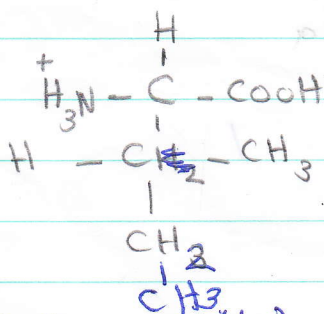 H
+
H3N - C - COOH
H - CH - CH3
CH2
CH3